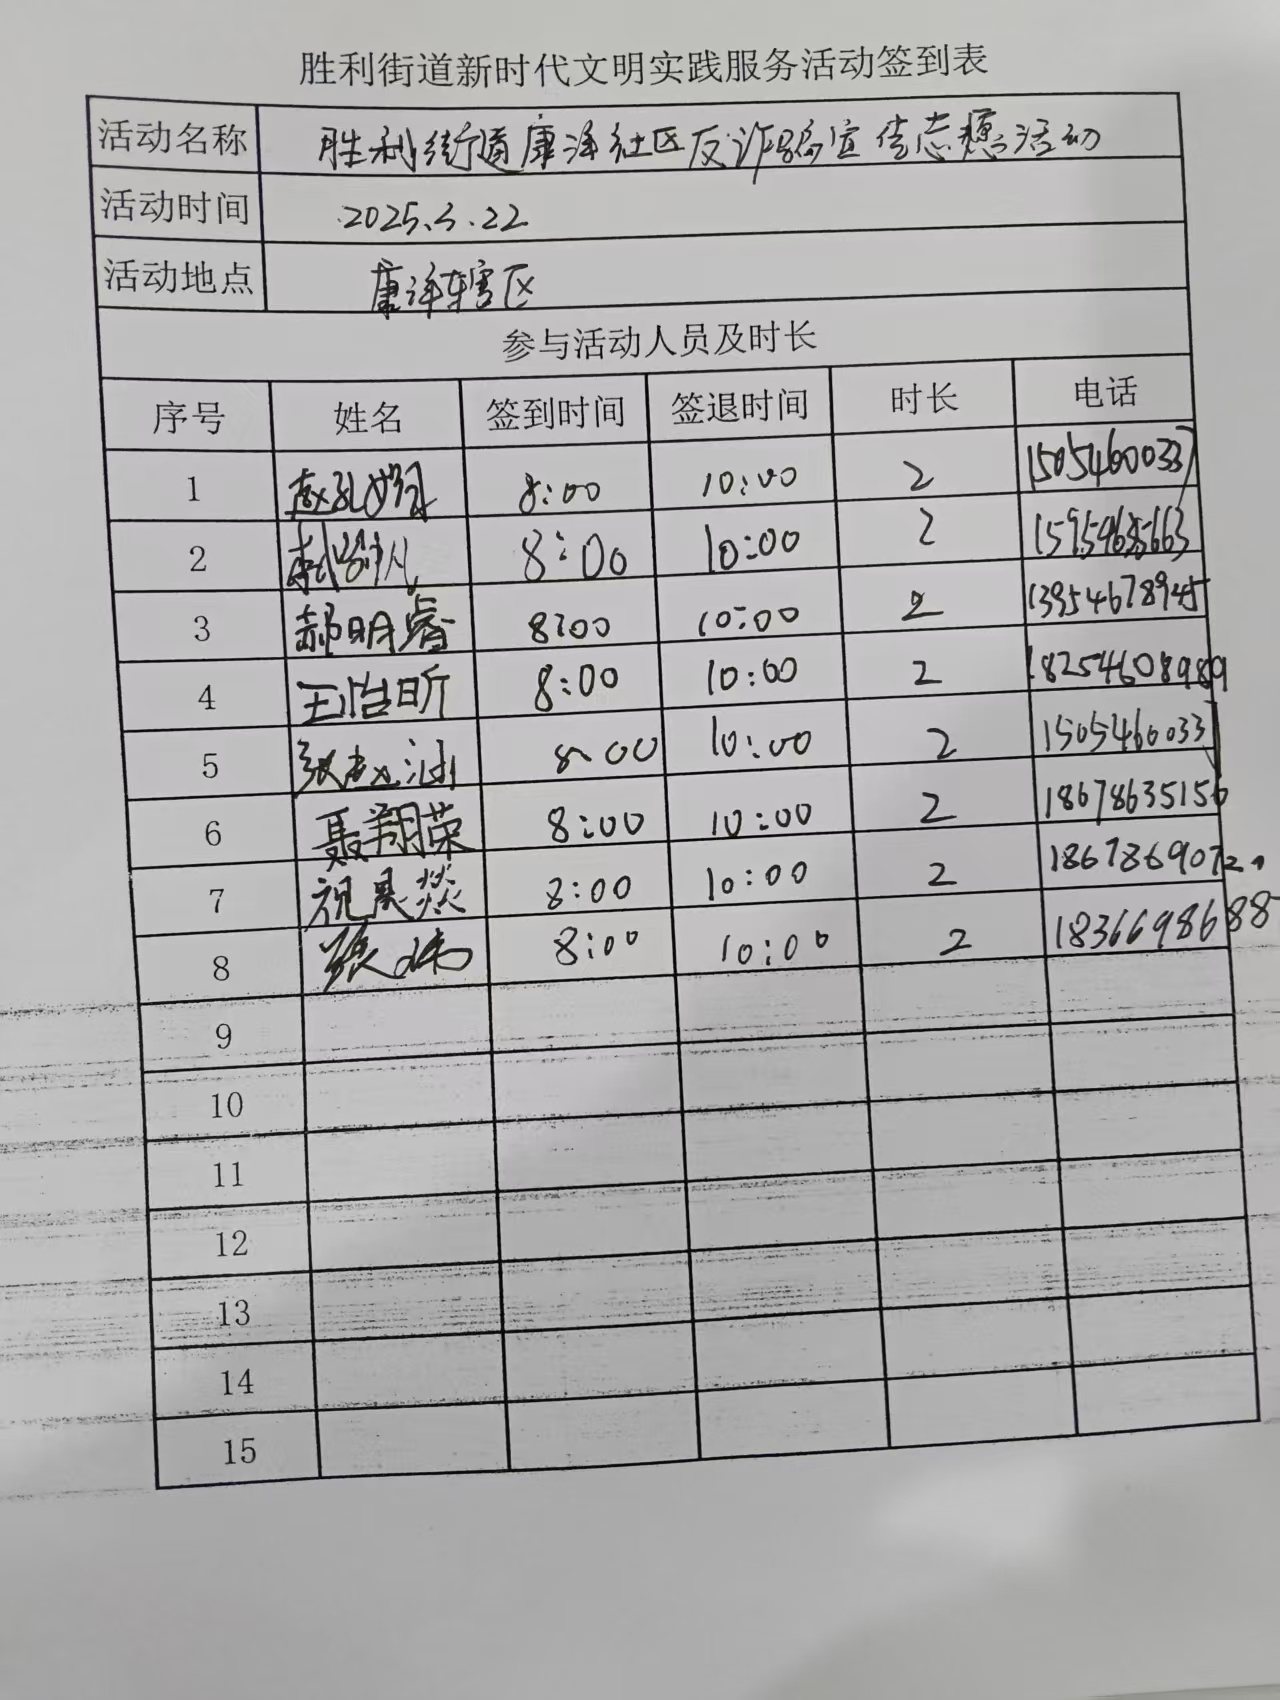 胜利街道新时代文明实践服务活动签到表
活动名称 胜利街道康洋社区反诈骗宣传志愿活动
活动时间 2025.3.22
活动地点 康洋辖区
参与活动人员及时长
序号 姓名 签到时间 签退时间 时长 电话
1 8:00 10:00 2 15054600337
2 8:00 10:00 2
3 郝明睿 8:00 10:00 2 13954678945
4 王怡昕 8:00 10:00 2 18254608989
5 张赵涵 8:00 10:00 2 15054600337
6 聂翔荣 8:00 10:00 2 18678635156
7 祝昊燚 8:00 10:00 2
8 张伟 8:00 10:00 2 18366698688
9
10
11
12
13
14
15